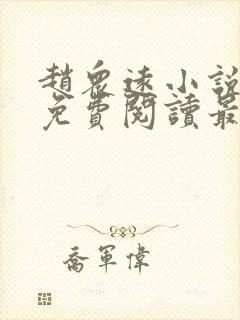 趙眾遠小說
免費閱讀最
喬軍偉